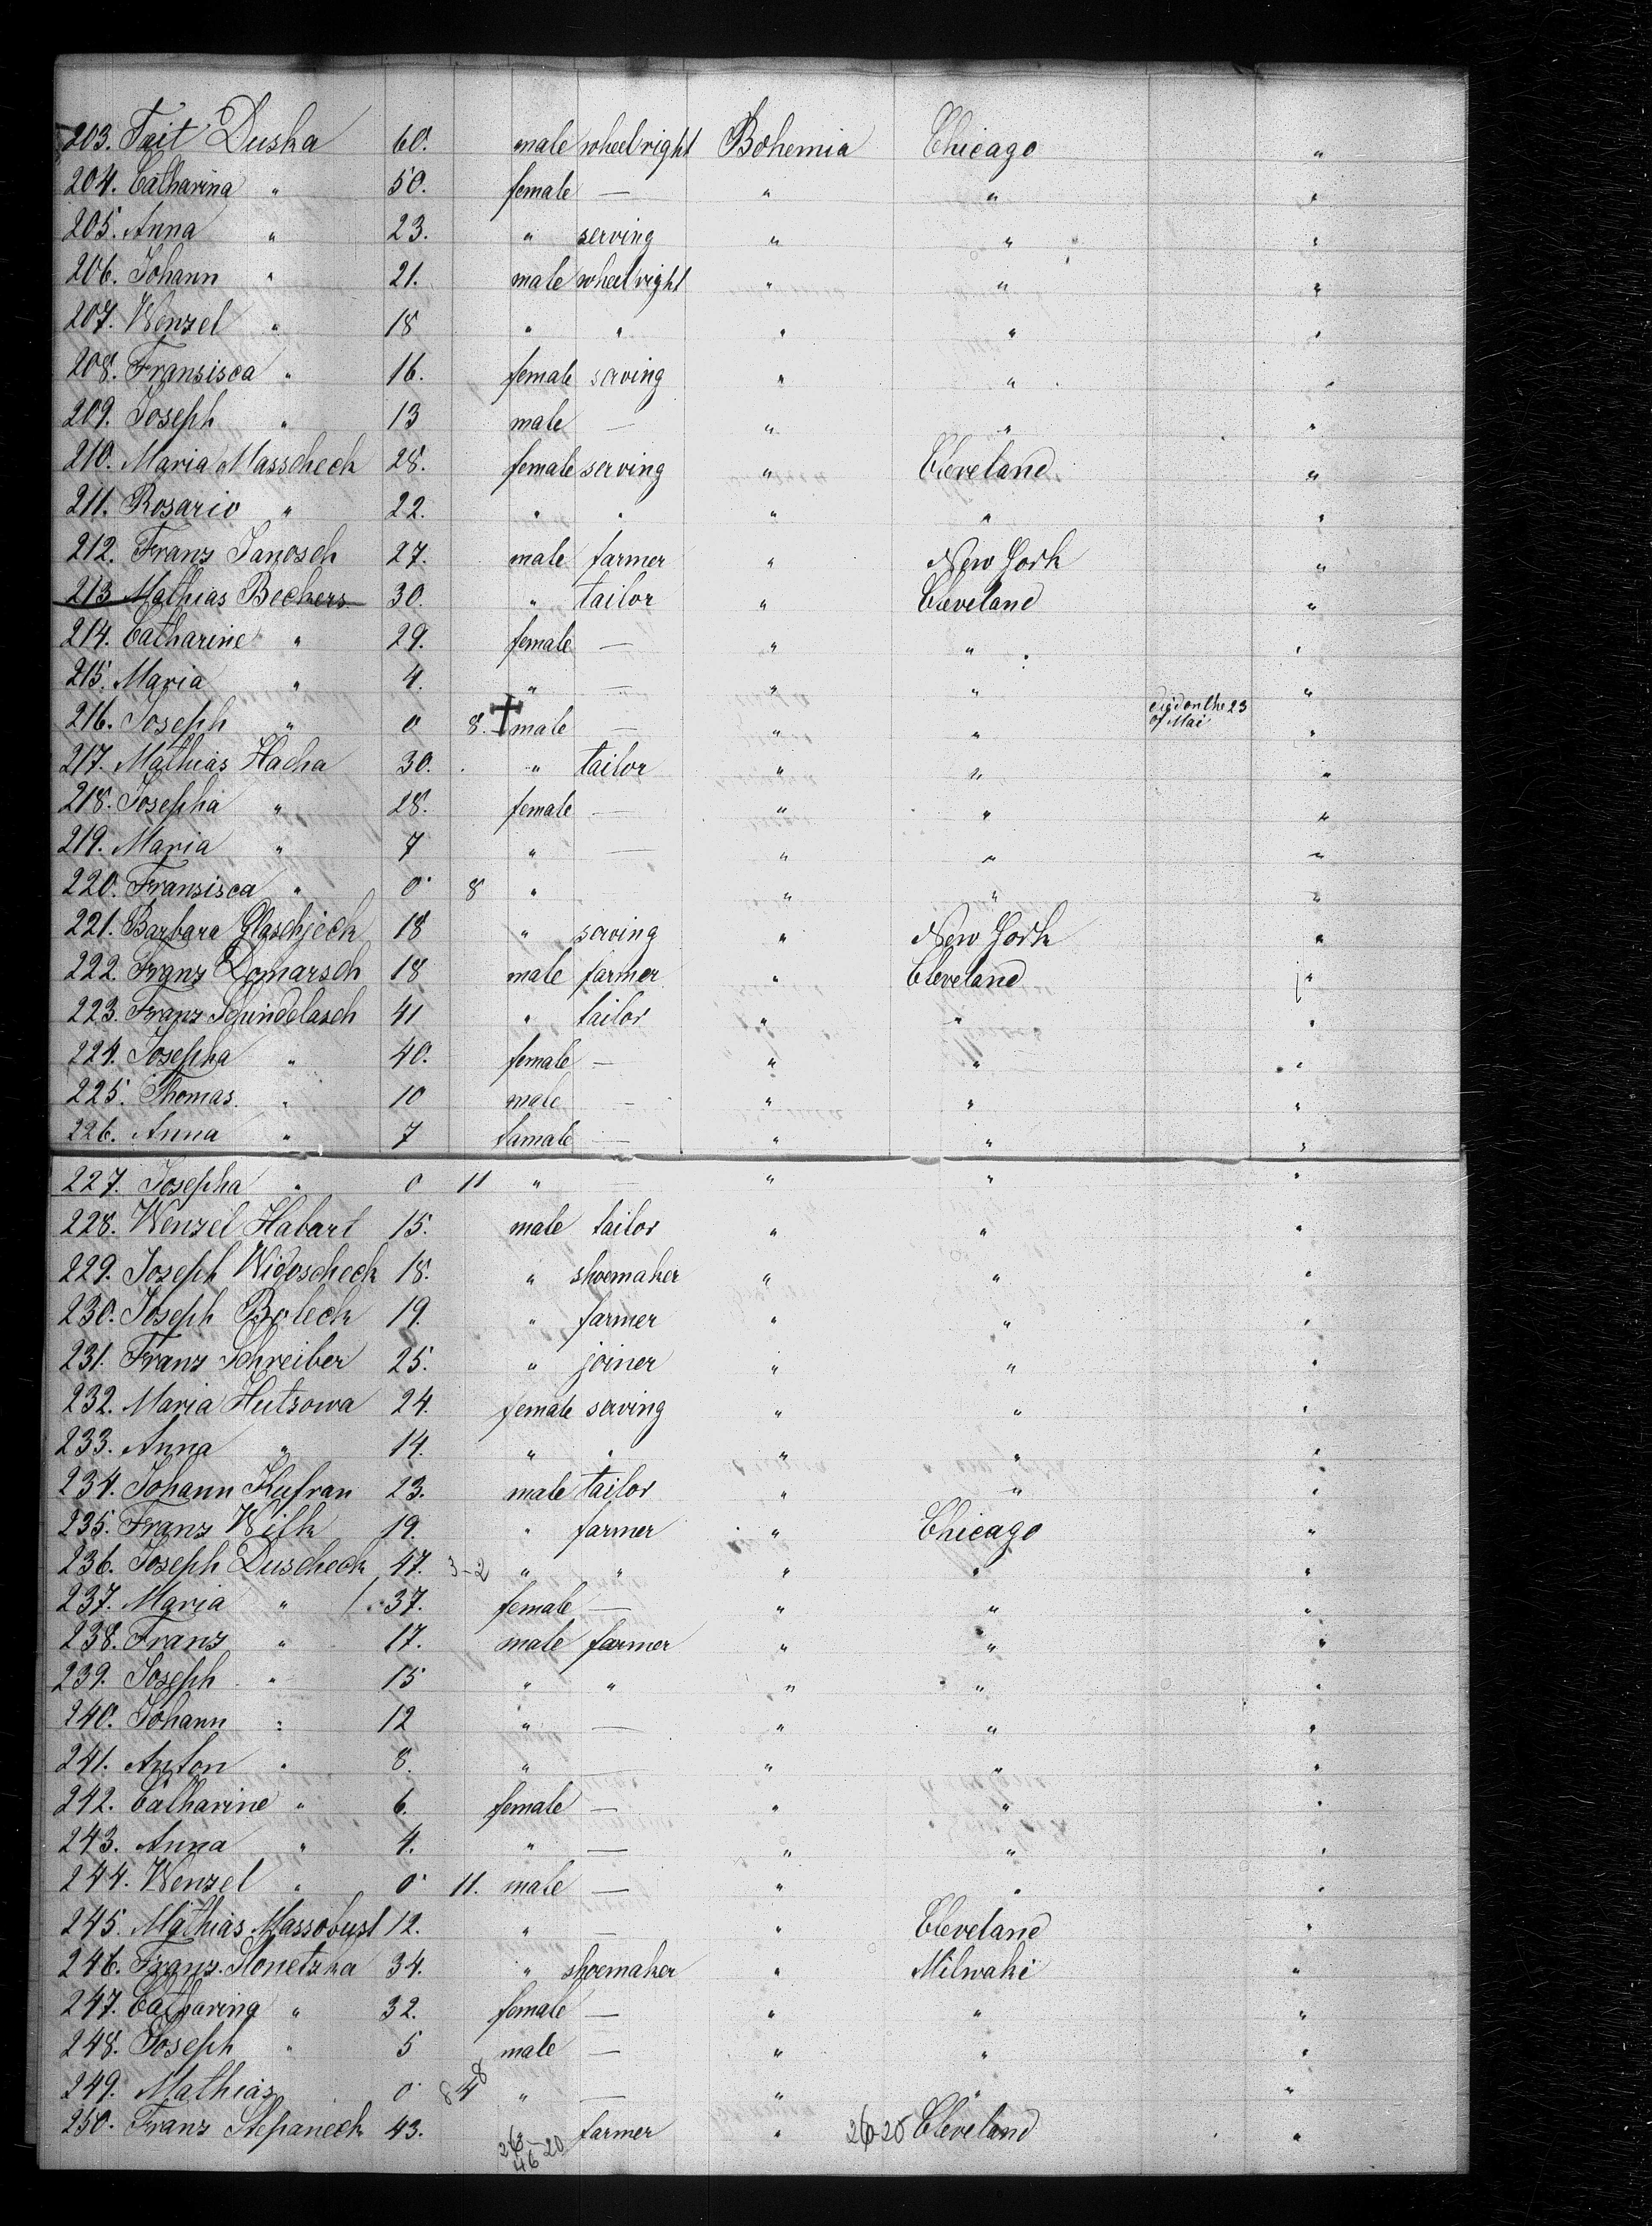 203. Fait Duska 60. male wheelright Bohemia Chicago "
204. Catharina " 50. female — " " "
205. Anna " 23. " serving " " "
206. Johann " 21. male wheelright " " "
207. Wenzel " 18 " " " " "
208. Fransisca " 16. female serving " " "
209. Joseph " 13 male — " " "
210. Maria Masscheck 28. female serving " Cleveland "
211. Rosario " 22. " " " " "
212. Franz Janosch 27. male farmer " New York "
213 Mathias Beckers 30. " tailor " Cleveland "
214. Catharine " 29. female — " " "
215. Maria " 4. " — " " "
216. Joseph " 0 8. † male — " " died on the 23 of Mai "
217. Mathias Hacha 30. " tailor " " "
218. Josepha " 28. female — " " "
219. Maria " 7 " — " " "
220. Fransisca " 0 8 " " " "
221. Barbara Glaschjeck 18 " serving " New York "
222. Franz Domarsch 18 male farmer " Cleveland "
223. Franz Schindelasch 41 " tailor " " "
224. Josepha " 40. female — " " "
225. Thomas. " 10 male — " " "
226. Anna " 7 famale — " " "
227. Josepha " 0 11 " — " " "
228. Wenzel Habart 15. male tailor " " "
229. Joseph Widoscheck 18. " shoemaker " " "
230. Joseph Boleck 19. " farmer " " "
231. Franz Schreiber 25. " joiner " " "
232. Maria Hutsowa 24. female serving " " "
233. Anna " 14. " " " " "
234. Johann Kufran 23. male tailor " " "
235. Franz Wilk 19. " farmer " Chicago "
236. Joseph Duscheck 47. 3-2 " " " " "
237. Maria " 37. female — " " "
238. Franz " 17. male farmer " " "
239. Joseph " 15 " " " " "
240. Johann " 12 " — " " "
241. Anton " 8. " — " " "
242. Catharine " 6. female — " " "
243. Anna " 4. " — " " "
244. Wenzel " 0 11. male — " " "
245. Mathias Massobust 12. " — " Cleveland "
246. Franz Slonetzka 34. " shoemaker " Milwaki "
247. Catharina " 32. female — " " "
248. Joseph " 5 male — " " "
249. Mathias 0 " — " " "
250. Franz Stepaneck 43. farmer " 26-20 Cleveland "
46